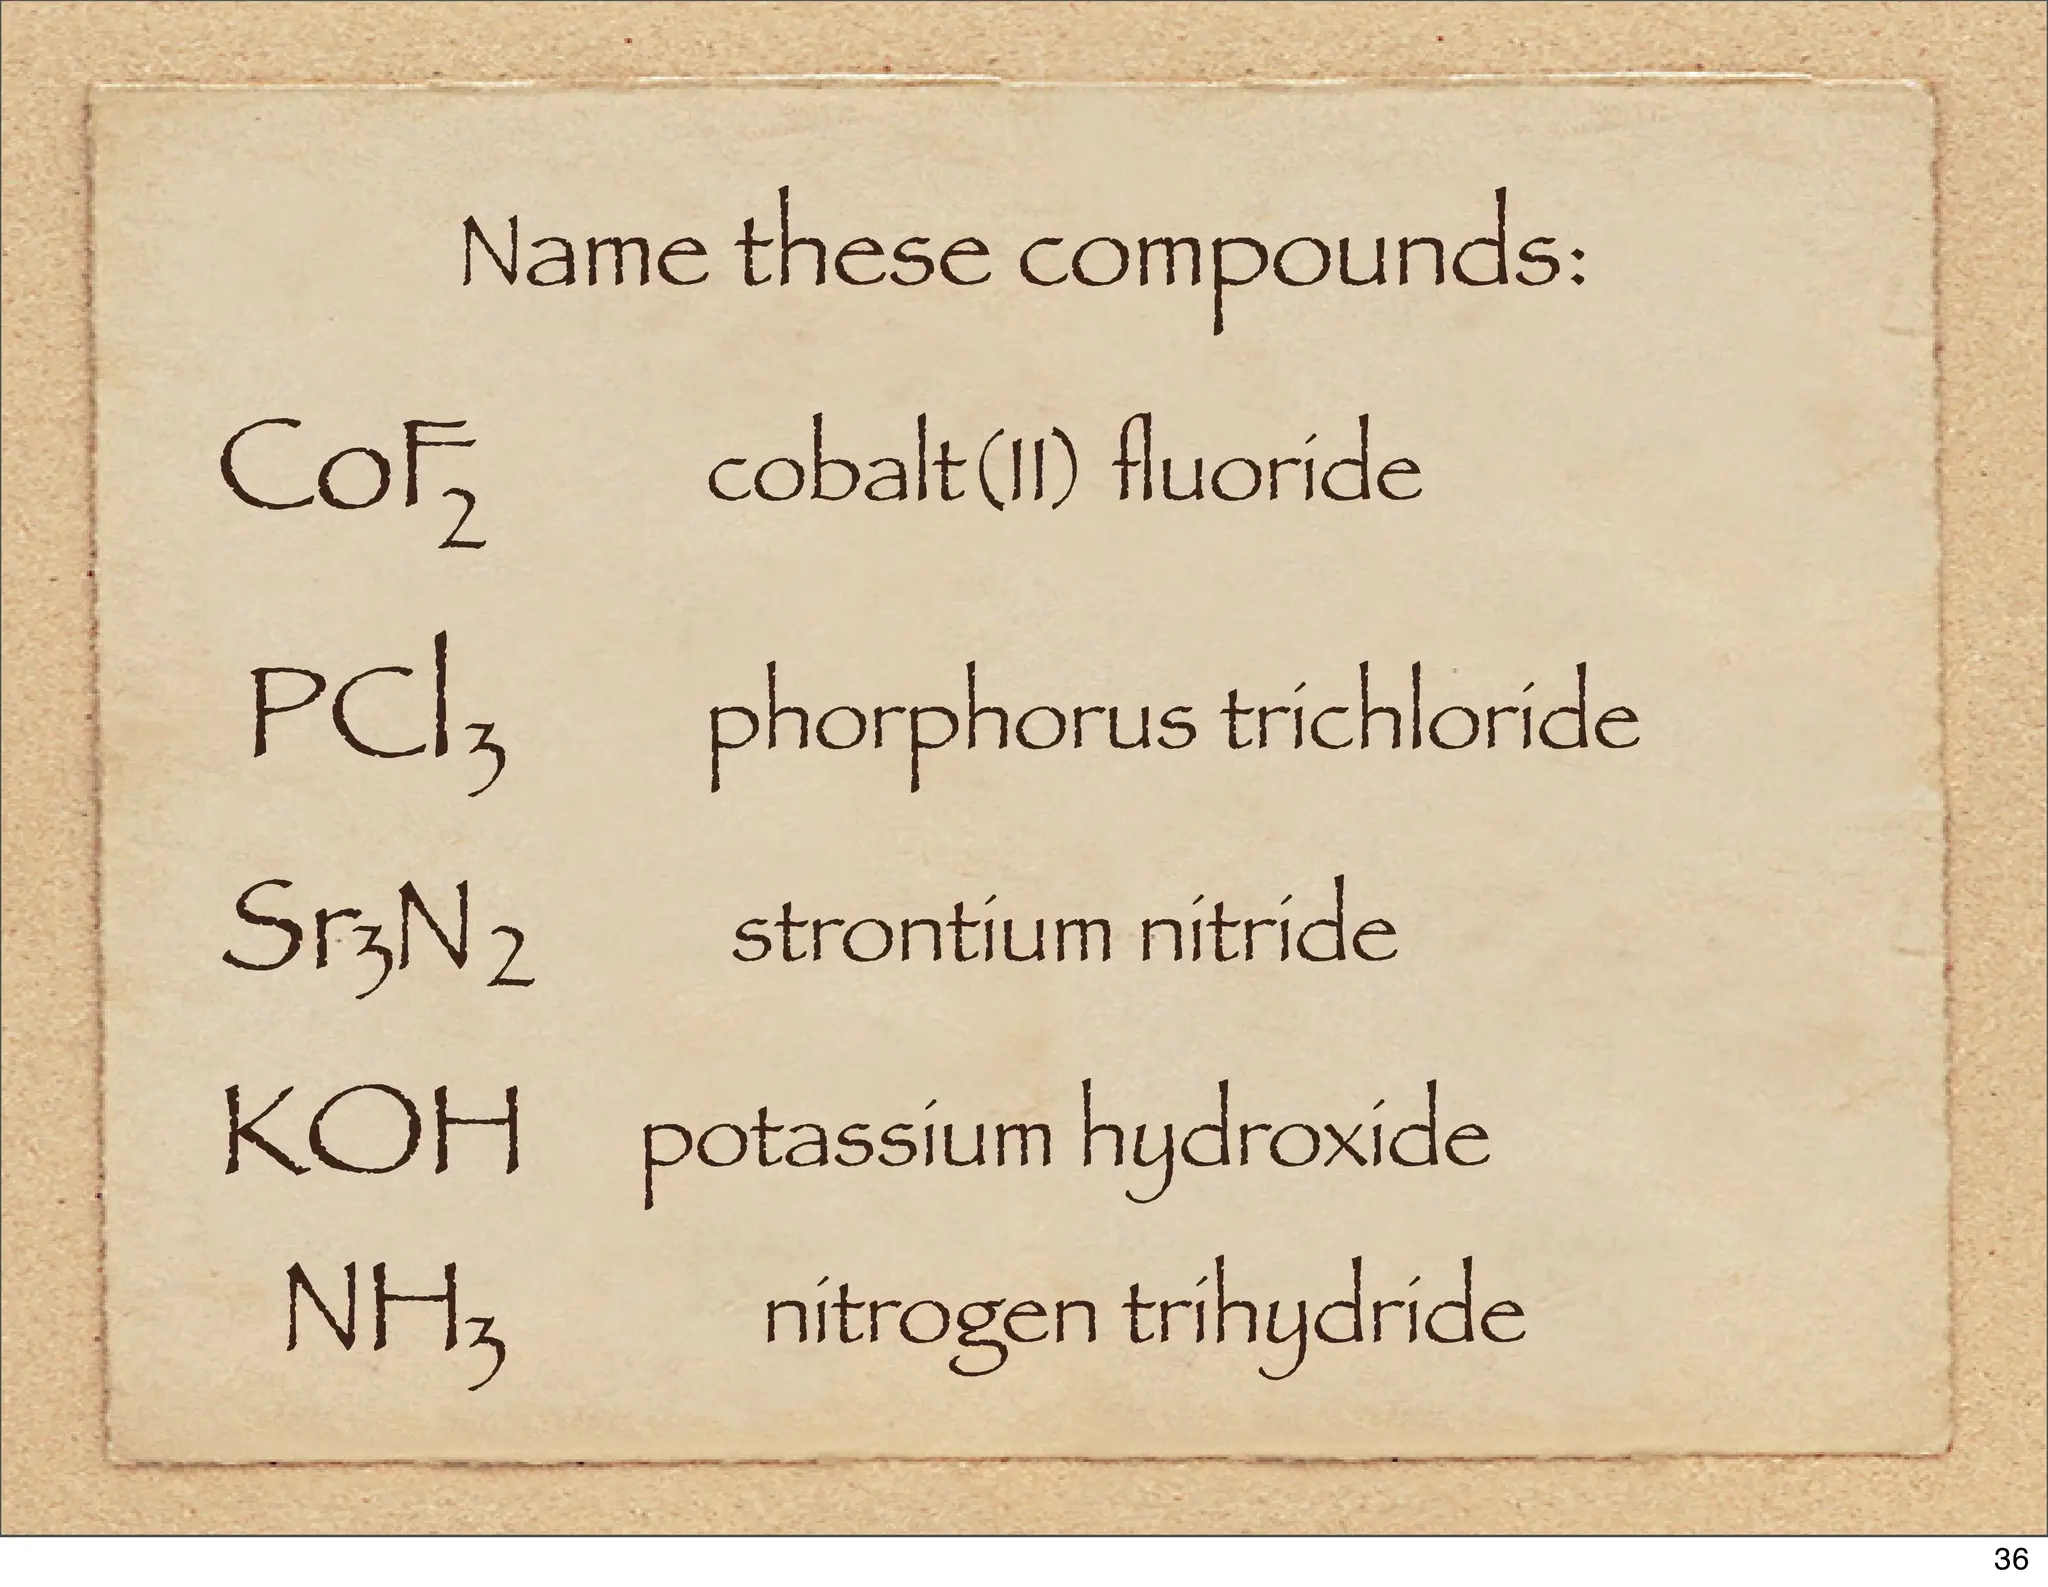 Name these compounds:
CoF₂ cobalt(II) fluoride
PCl₃ phorphorus trichloride
Sr₃N₂ strontium nitride
KOH potassium hydroxide
NH₃ nitrogen trihydride
36